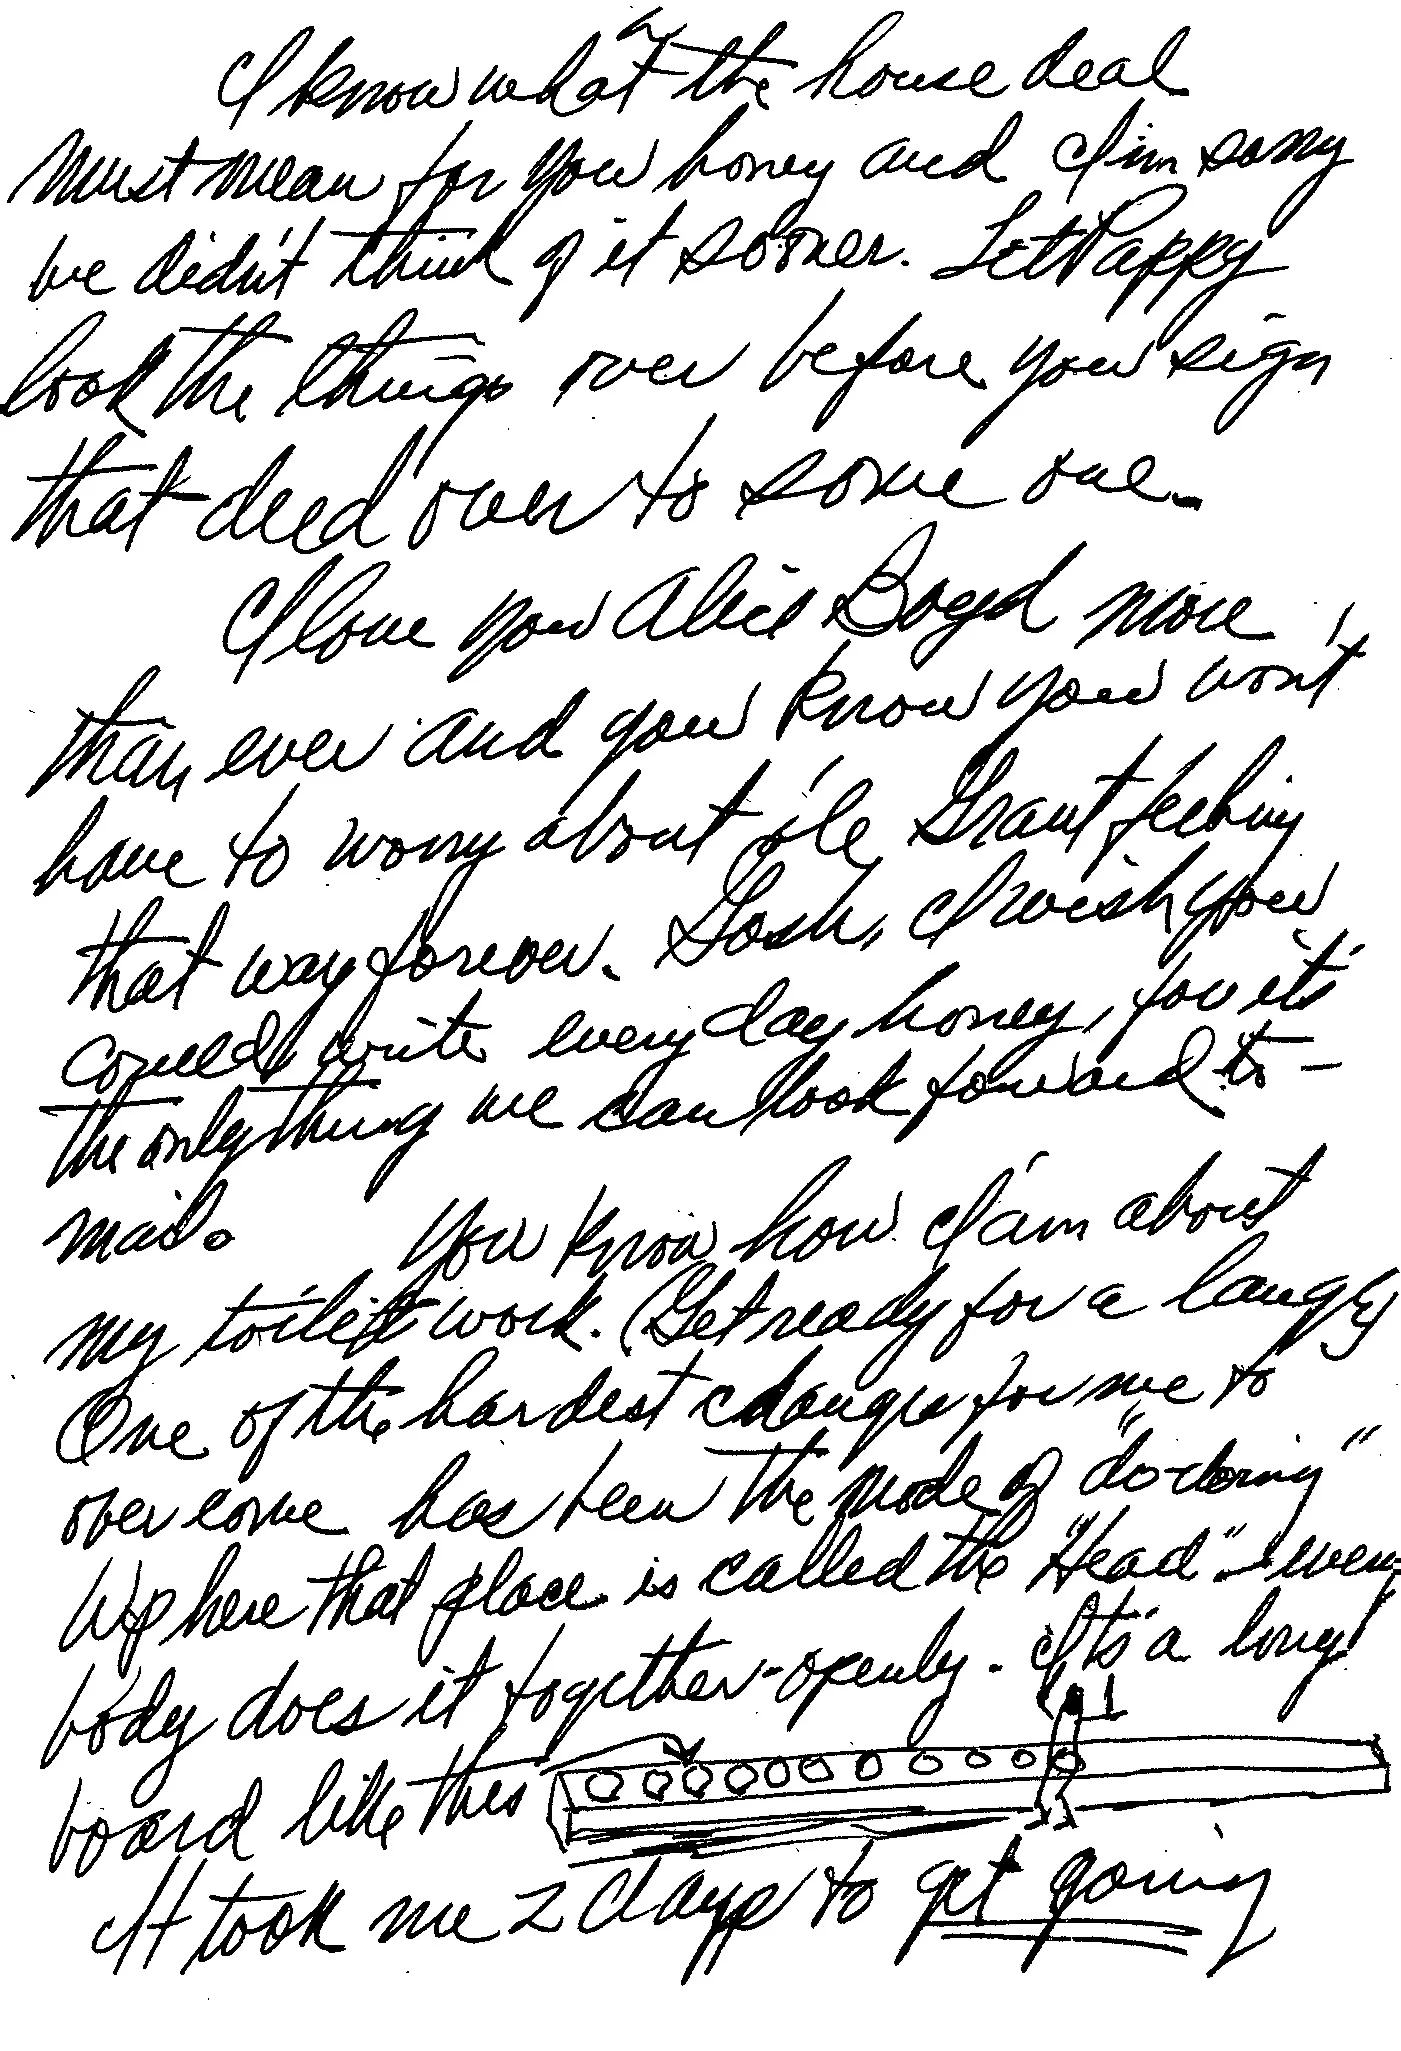 I know what the house deal
must mean for you honey and I'm sorry
we didn't think of it sooner. Let Pappy
look the things over before you sign
that deed over to some one.
I love you Alice Boyd more
than ever and you know you won't
have to worry about ole Grant feeling
that way forever. Gosh, I wish you
could write every day honey, for it's
the only thing we can look forward to -
mail. You know how I am about
my toilet work. (Get ready for a laugh)
One of the hardest changes for me to
overcome has been the mode of "do-doing"
Up here that place is called the "Head" - every
body does it together - openly. It's a long
board like this
It took me 2 days to get going